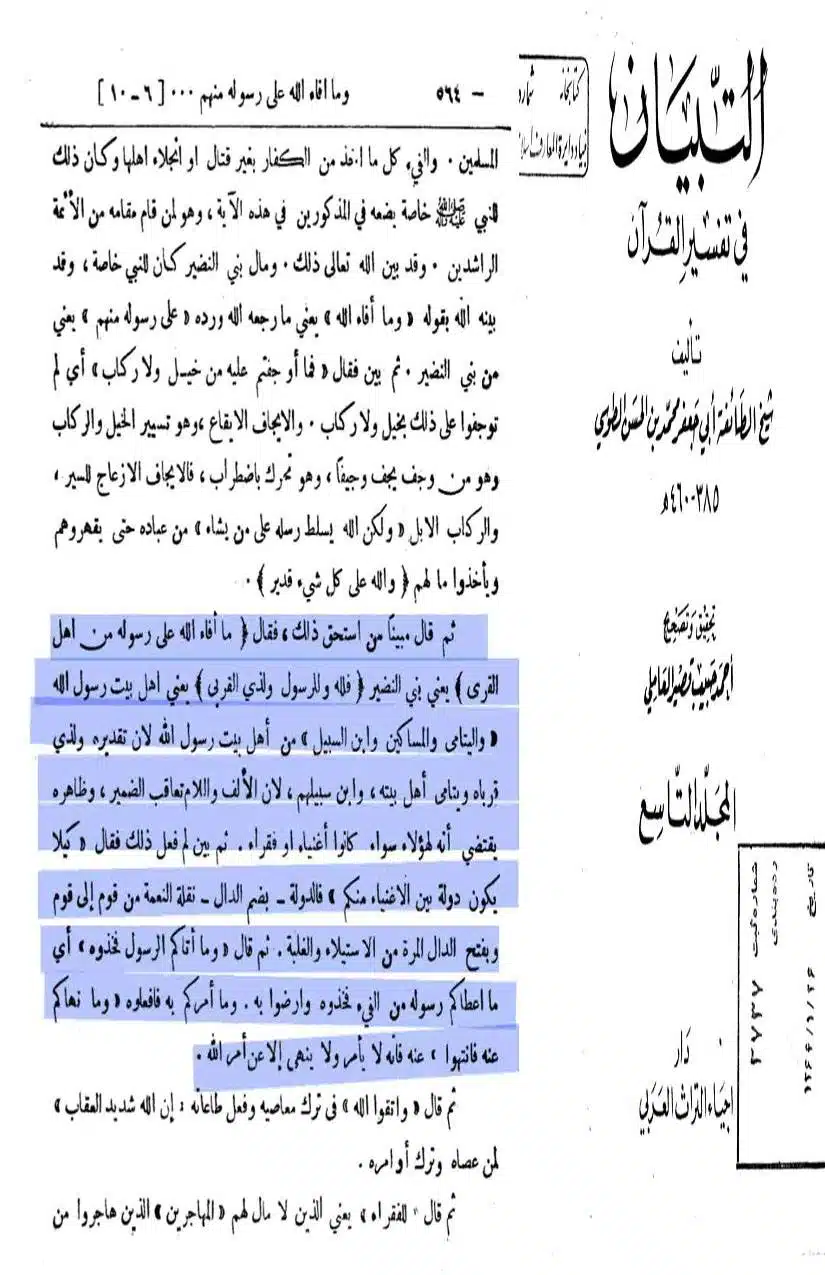 التبيان
في تفسير القرآن
تأليف
شيخ الطائفة أبي جعفر محمد بن الحسن الطوسي
٣٨٥-٤٦٠ه
تحقيق وتصحيح
أحمد حبيب قصير العاملي
المجلد التاسع
دار
احياء التراث العربي
كتابخانه
بنياد دايرة المعارف اسلا
شماره ثبت
٢٧٣٧
رده بندى
تاريخ
– ٥٦٤ وما افاء الله على رسوله منهم ٠٠٠ [ ٦ – ١٠ ]
المسلمين ٠ والفيء كل ما اخذ من الكفار بغير قتال او انجلاء اهلها وكان ذلك
للنبي ﷺ خاصة يضعه في المذكورين في هذه الآية ، وهو لمن قام مقامه من الأئمة
الراشدين ٠ وقد بين الله تعالى ذلك ٠ ومال بني النضير كان للنبي خاصة ، وقد
بينه الله بقوله « وما أفاء الله » يعني ما رجعه الله ورده « على رسوله منهم » يعني
من بني النضير ٠ ثم بين فقال « فما أو جفتم عليه من خيل ولا ركاب » أي لم
توجفوا على ذلك بخيل ولا ركاب ٠ والايجاف الايقاع ،وهو تسيير الخيل والركاب
وهو من وجف يجف وجيفاً ، وهو تحرك باضطراب ، فالايجاف الازعاج للسير ،
والركاب الابل « ولكن الله يسلط رسله على من يشاء » من عباده حتى يقهروهم
ويأخذوا ما لهم ( والله على كل شيء قدير ) ٠
ثم قال مبيناً من استحق ذلك ، فقال ( ما أفاء الله على رسوله من اهل
القرى ) يعني بني النضير ( فلله وللرسول ولذي القربى ) يعني اهل بيت رسول الله
« واليتامى والمساكين وابن السبيل » من أهل بيت رسول الله لان تقديره ولذي
قرباه ويتامى أهل بيته ، وابن سبيلهم ، لان الألف واللام تعاقب الضمير ، وظاهره
يقتضي أنه لهؤلاء سواء كانوا أغنياء او فقراء ٠ ثم بين لم فعل ذلك فقال « كيلا
يكون دولة بين الاغنياء منكم » فالدولة – بضم الدال – نقلة النعمة من قوم إلى قوم
وبفتح الدال المرة من الاستيلاء والغلبة . ثم قال « وما أتاكم الرسول فخذوه » أي
ما اعطاكم رسوله من الفيء فخذوه وارضوا به . وما أمركم به فافعلوه « وما نهاكم
عنه فانتهوا ، عنه فانه لا يأمر ولا ينهى إلا عن أمر الله .
ثم قال « واتقوا الله » فى ترك معاصيه وفعل طاعاته : إن الله شديد العقاب »
لمن عصاه وترك أوامره .
ثم قال « للفقراء » يعني الذين لا مال لهم « المهاجرين » الذين هاجروا من